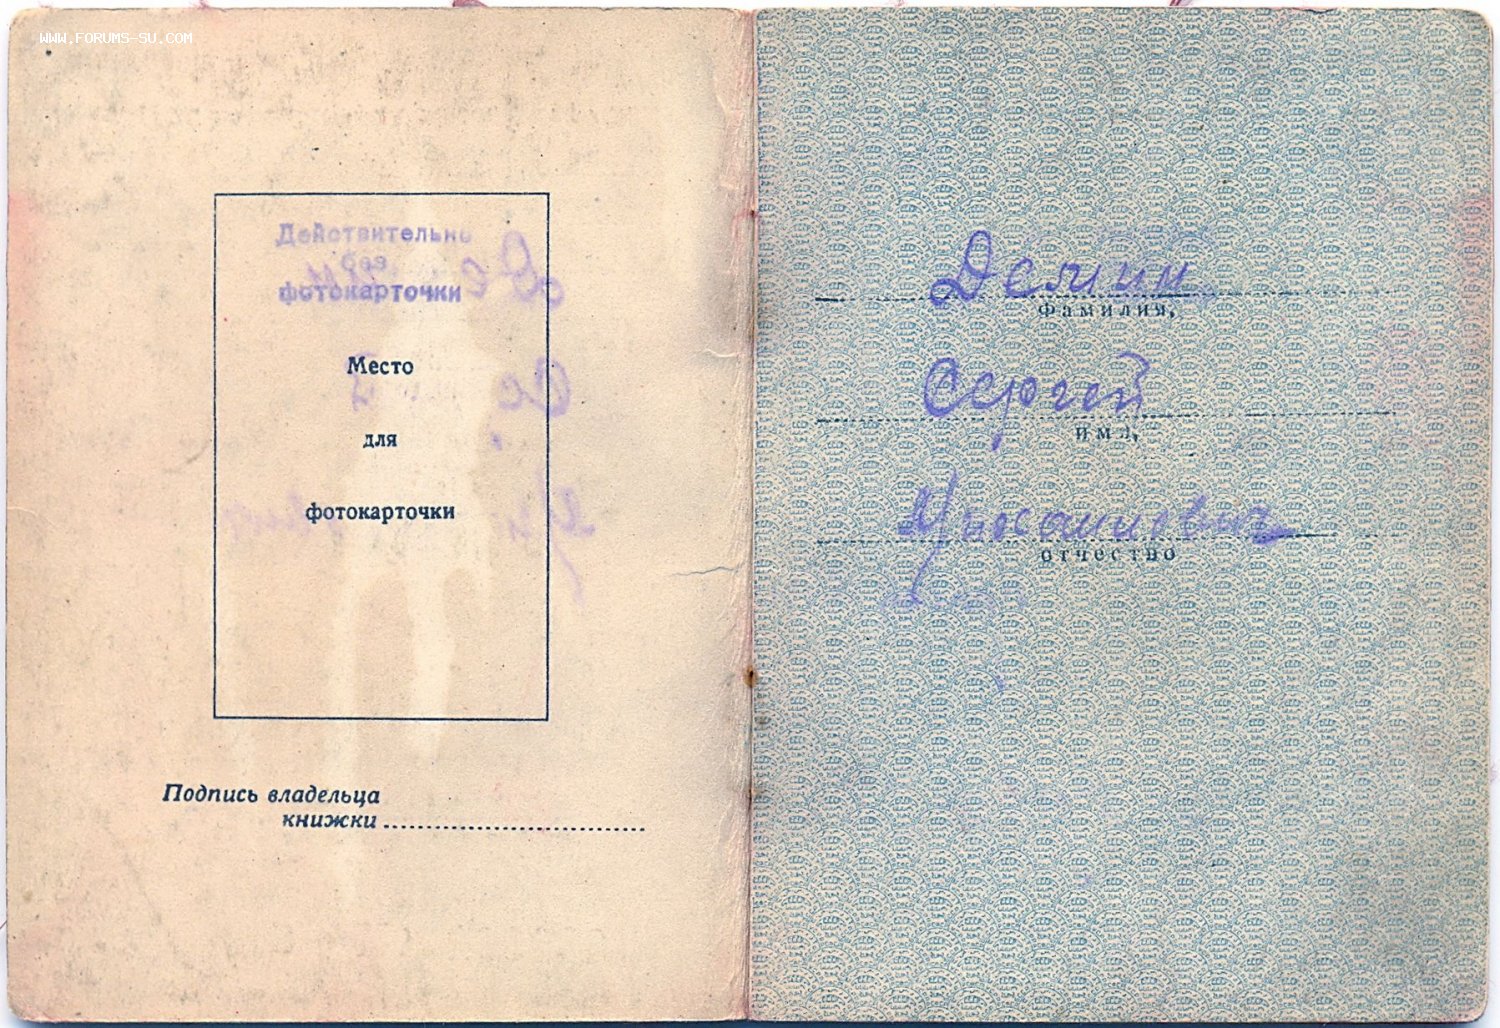 WWW.FORUMS-SU.COM
Действительно
без
фотокарточки
Место
для
фотокарточки
Подпись владельца
книжки
Демин
фамилия,
Сергей
имя,
Михайлович
отчество